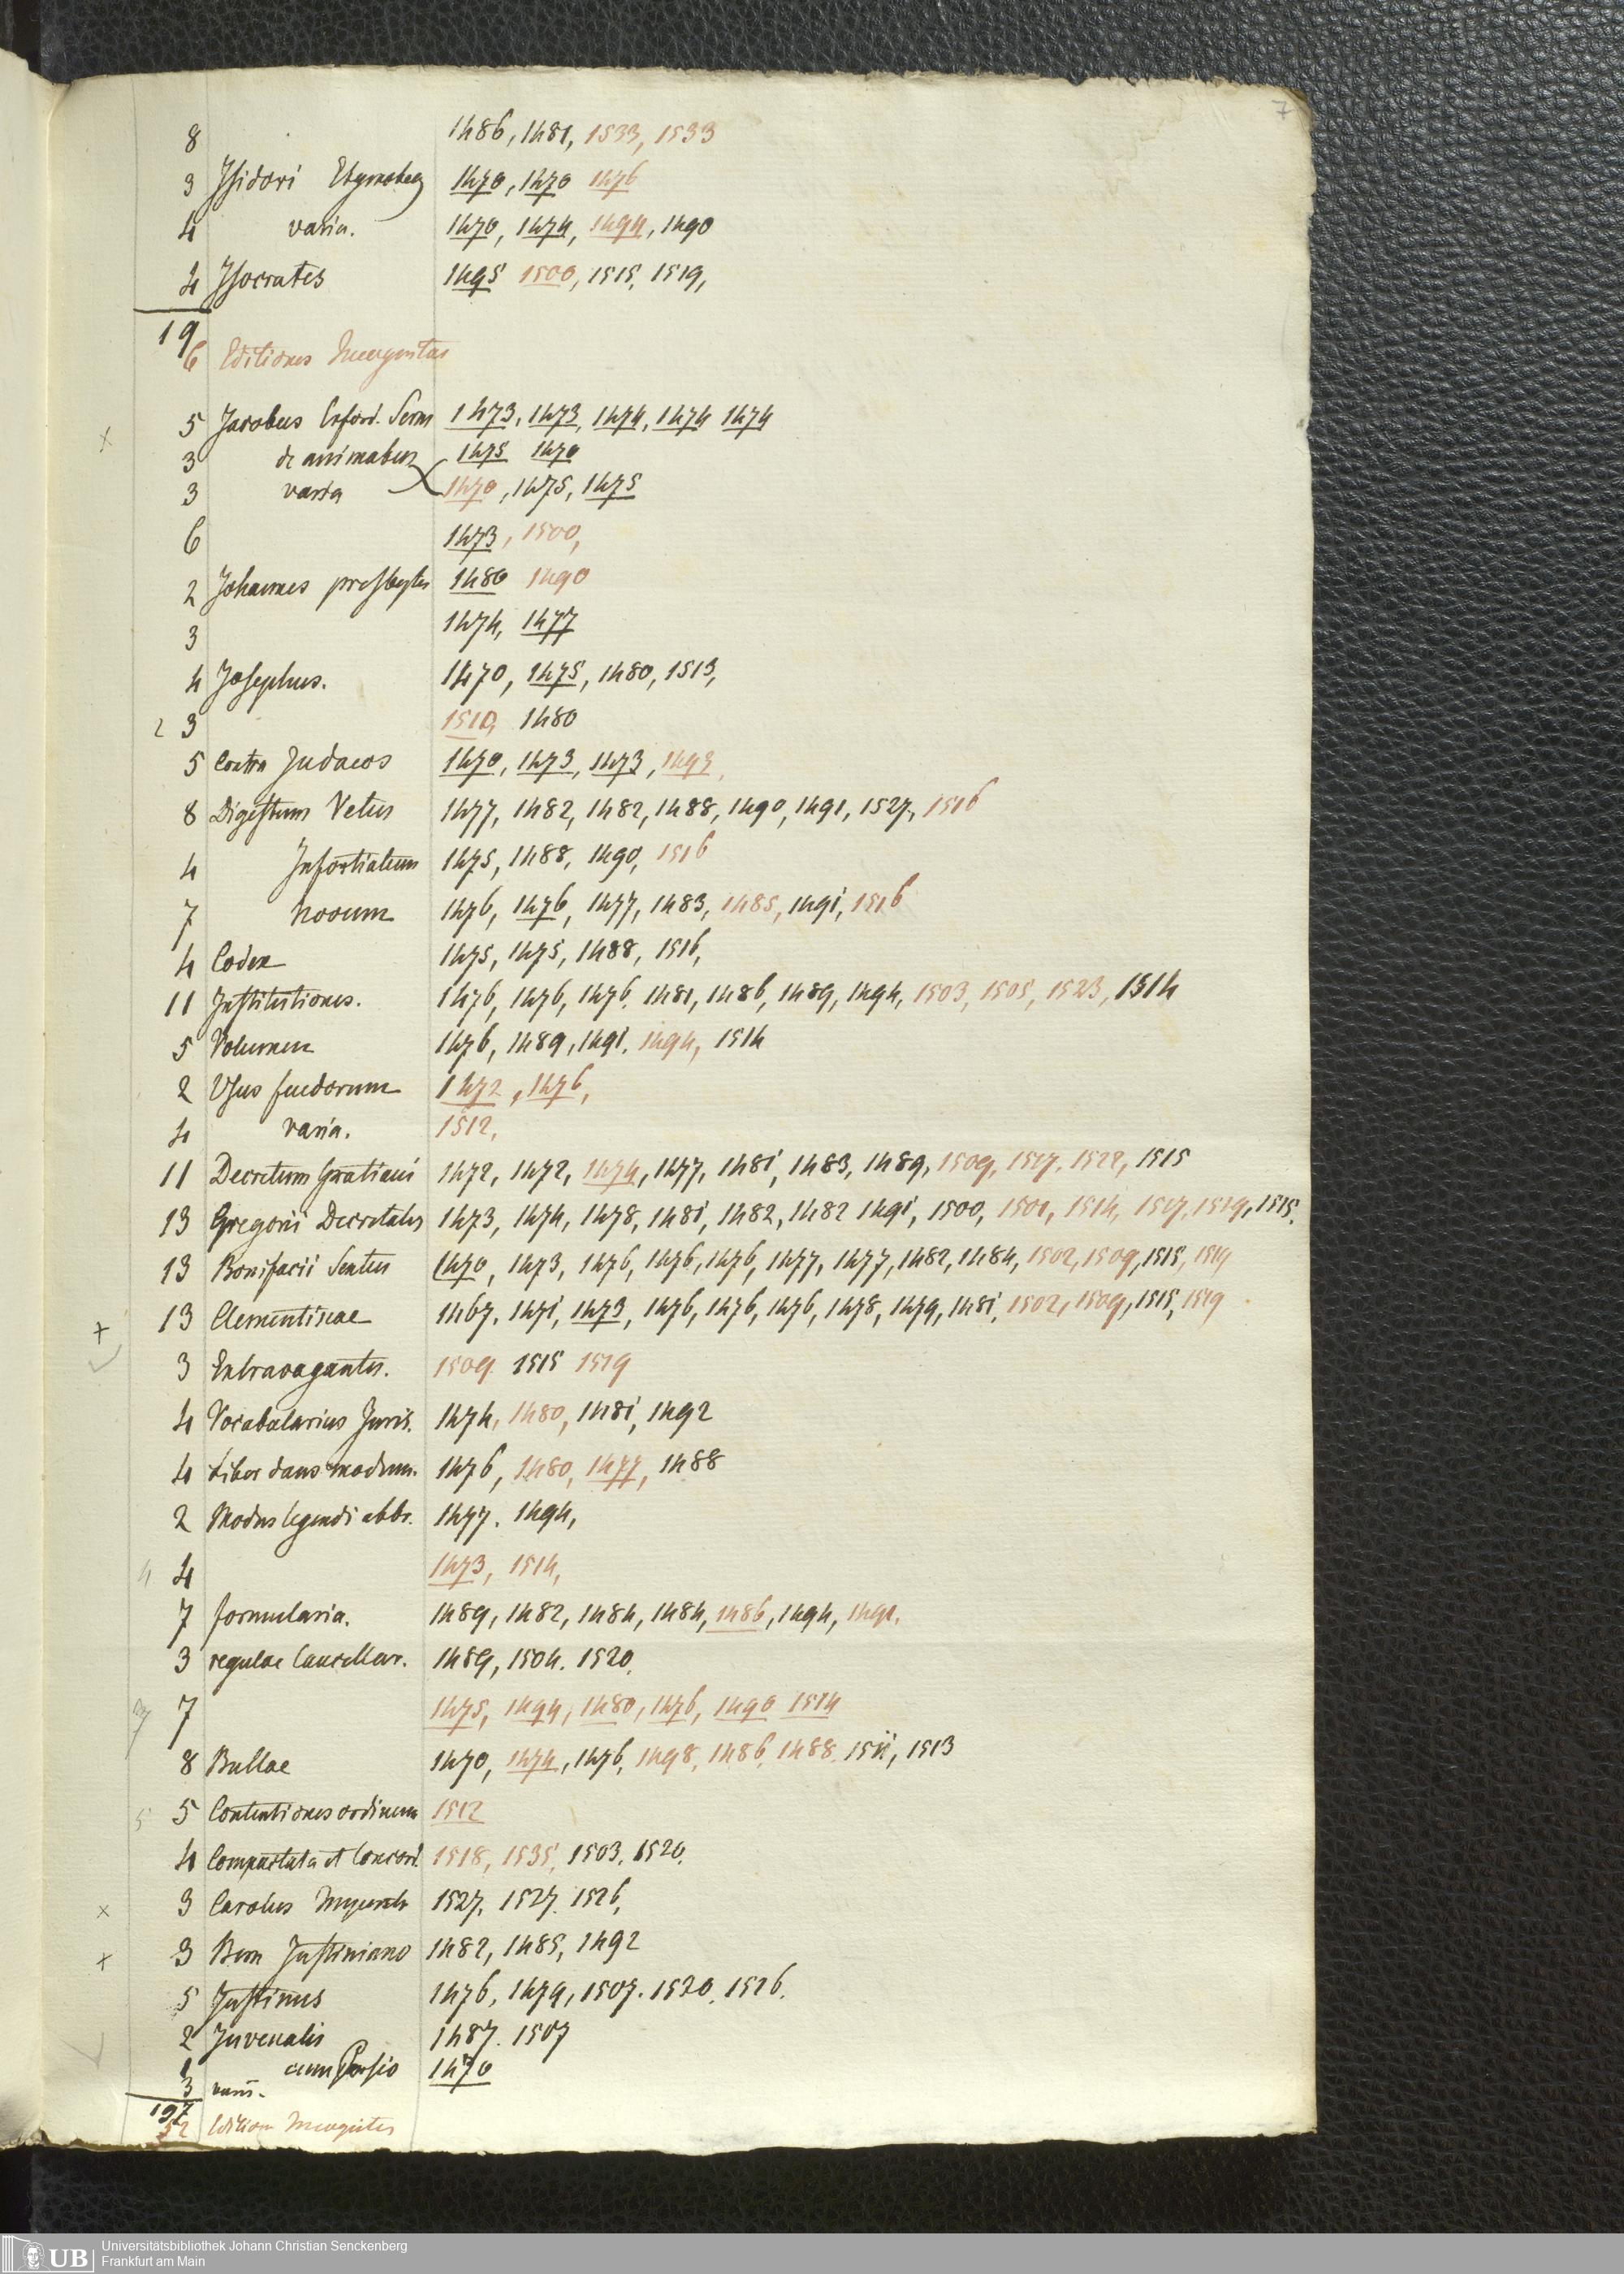 7
8 1486, 1481, 1533, 1533
3 Isidori Etymolog 1470, 1470 1476
4 varia. 1470, 1474, 1494, 1490
4 Isocrates 1495 1500, 1515, 1519,
19
6 Editiones Incognitae
5 Jacobus Erford. Serm 1473, 1473, 1474, 1474 1474
3 de animabus 1475 1470
3 varia 1470, 1475, 1475
6 1473, 1500,
2 Johannes presbyter 1486 1490
3 1474, 1477
4 Josephus. 1470, 1475, 1480, 1513,
2 3 1510, 1480
5 Contra Judaeos 1470, 1473, 1473, 1493,
8 Digestum Vetus 1477, 1482, 1482, 1488, 1490, 1491, 1527, 1516
4 Infortiatum 1475, 1488, 1490, 1516
7 novum 1476, 1476, 1477, 1483, 1485, 1491, 1516
4 Codex 1475, 1475, 1488, 1516,
11 Institutiones. 1476, 1476, 1476, 1481, 1486, 1489, 1494, 1503, 1505, 1523, 1514
5 Volumen 1476, 1489, 1491, 1494, 1514
2 Usus feudorum 1472, 1476,
4 varia. 1512,
11 Decretum Gratiani 1472, 1472, 1474, 1477, 1481, 1483, 1489, 1509, 1517, 1522, 1515
13 Gregorii Decretales 1473, 1474, 1478, 1481, 1482, 1482 1491, 1500, 1501, 1514, 1517, 1519, 1515.
13 Bonifacii Sextus 1470, 1473, 1476, 1476, 1476, 1477, 1477, 1482, 1484, 1502, 1509, 1515, 1519
13 Clementinae 1467, 1471, 1473, 1476, 1476, 1476, 1478, 1479, 1481, 1502, 1509, 1515, 1519
3 Extravagantes. 1509. 1515 1519
4 Vocabularius Juris. 1474, 1480, 1481, 1492
4 Liber dans modum. 1476, 1480, 1477, 1488
2 Modus legendi abbr. 1477. 1494,
4 4 1473, 1514,
7 formularia. 1489, 1482, 1484, 1484, 1486, 1494, 1491.
3 regulae Cancellar. 1489, 1504. 1520.
7 1475, 1494, 1480, 1476, 1490 1514
8 Bullae 1470, 1474, 1476, 1498, 1486, 1488, 1511, 1513
5 5 Contentiones ordinum 1512
4 Compactata et Concord. 1518, 1535, 1503, 1520.
3 Carolus 1527, 1527. 1526,
3 Bern Justiniano 1482, 1485, 1492
5 Justinus 1476, 1479, 1507. 1520. 1526.
2 Juvenalis 1487. 1507
1 cum Persio 1470
3 varii.
197
52 Edition Incognitis
Universitätsbibliothek Johann Christian Senckenberg
UB Frankfurt am Main